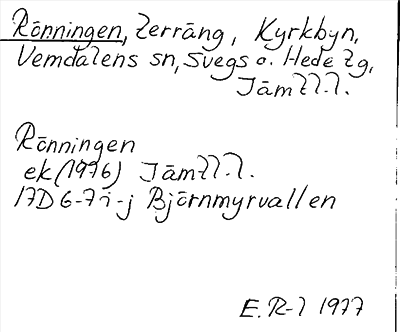 Rönningen, Terräng, Kyrkbyn,
Vemdalens sn, Svegs o. Hede tg,
Jämtl. l.
Rönningen
ek (1976) Jämtl. l.
17D 6-7i-j Björnmyrvallen
E. R-l 1977